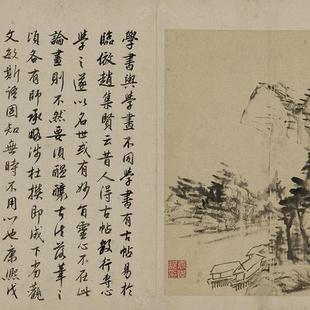 學書與學畫不同學書有古帖易於
臨倣趙集賢云昔人得古帖數行專心
學之遂以名世或有妙靈心不在此
論畫則不然要須醞釀古法落筆之
頃各有師承略涉杜撰即成下劣觀
文敏斯語固知無時不用心也康熙戊